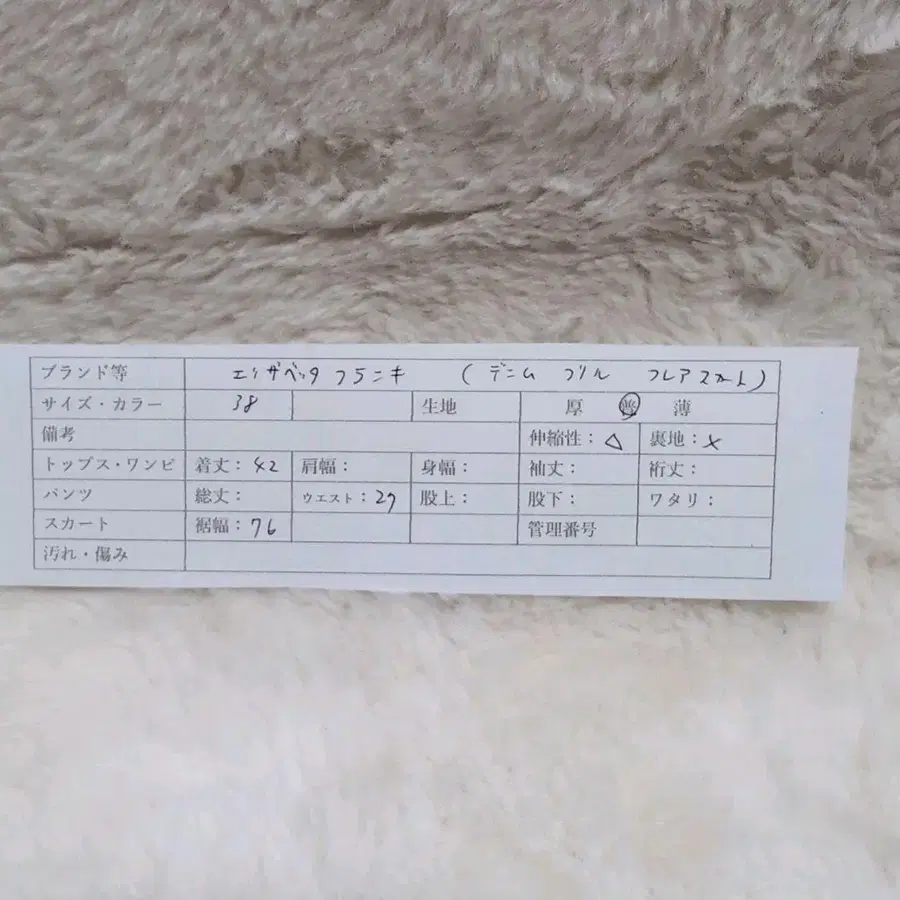 ブランド等 エリザベッタ フランキ (デニム フリル フレアスカート)
サイズ・カラー 38 生地 厚 普 薄
備考 伸縮性：△ 裏地：×
トップス・ワンピ 着丈：42 肩幅： 身幅： 袖丈： 裄丈：
パンツ 総丈： ウエスト：27 股上： 股下： ワタリ：
スカート 裾幅：76 管理番号
汚れ・傷み